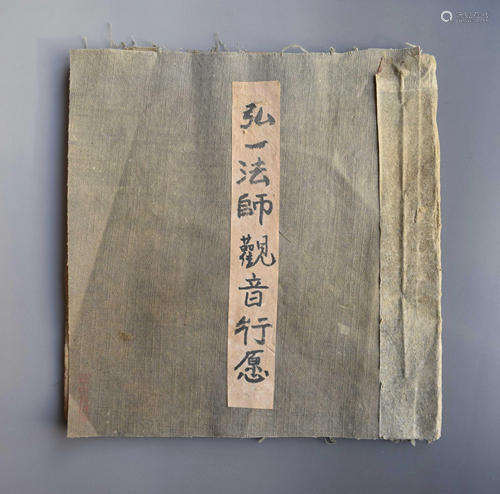 弘一法師觀音行愿